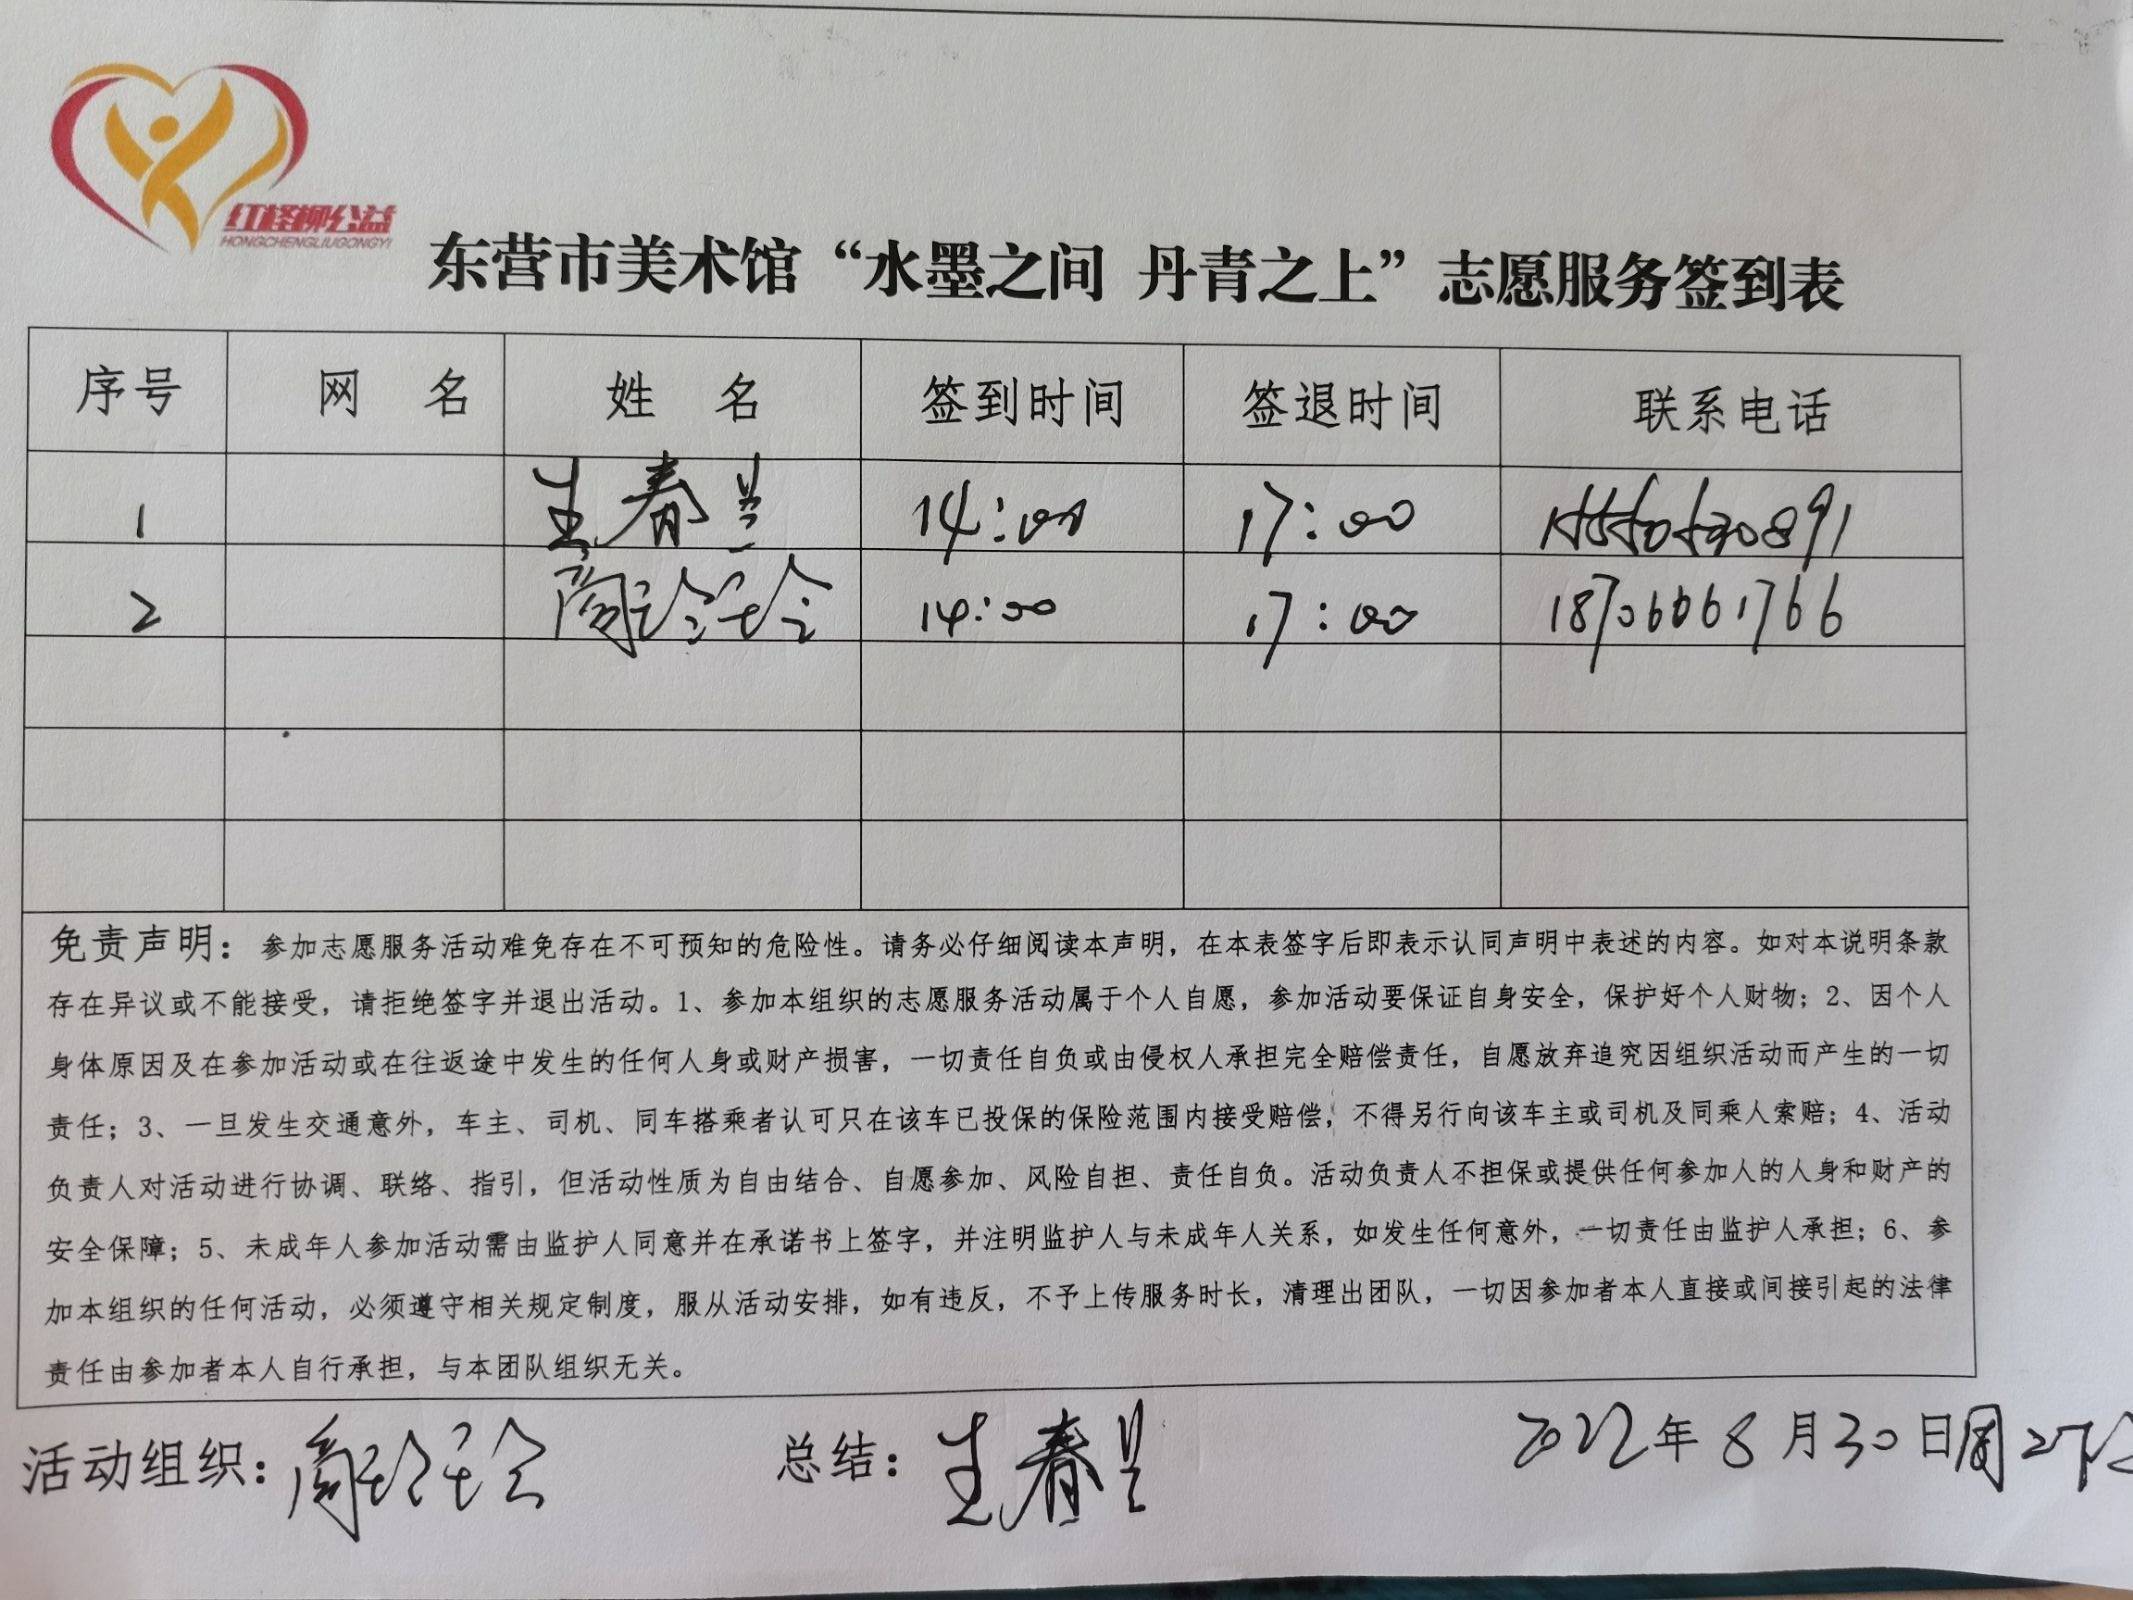 红柽柳公益
HONGCHENGLIUGONGYI
东营市美术馆“水墨之间 丹青之上”志愿服务签到表
序号 网 名 姓 名 签到时间 签退时间 联系电话
1 生春兰 14:00 17:00
2 14:00 17:00 18706661766
免责声明：参加志愿服务活动难免存在不可预知的危险性。请务必仔细阅读本声明，在本表签字后即表示认同声明中表述的内容。如对本说明条款
存在异议或不能接受，请拒绝签字并退出活动。1、参加本组织的志愿服务活动属于个人自愿，参加活动要保证自身安全，保护好个人财物；2、因个人
身体原因及在参加活动或在往返途中发生的任何人身或财产损害，一切责任自负或由侵权人承担完全赔偿责任，自愿放弃追究因组织活动而产生的一切
责任；3、一旦发生交通意外，车主、司机、同车搭乘者认可只在该车已投保的保险范围内接受赔偿，不得另行向该车主或司机及同乘人索赔；4、活动
负责人对活动进行协调、联络、指引，但活动性质为自由结合、自愿参加、风险自担、责任自负。活动负责人不担保或提供任何参加人的人身和财产的
安全保障；5、未成年人参加活动需由监护人同意并在承诺书上签字，并注明监护人与未成年人关系，如发生任何意外，一切责任由监护人承担；6、参
加本组织的任何活动，必须遵守相关规定制度，服从活动安排，如有违反，不予上传服务时长，清理出团队，一切因参加者本人直接或间接引起的法律
责任由参加者本人自行承担，与本团队组织无关。
活动组织： 总结：生春兰 2022年8月30日周2下